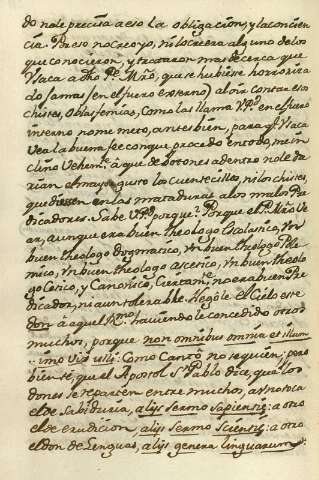 do no le precisa a eso la obligacion, y la concien
cia. Pero no creyo, ni lo creera alguno de los
que conocieron, y trataron mas de cerca que
Ysaca a dho Pe. Mro, que se hubiese horroriza
do jamas (en el fuero externo) al oir contar esos
chistes, o blasfemias, como las llama Vpd. en el fuero
interno no me meto, antes bien, para q Ysaca
vea la buena fee con que procedo en todo, me in
clino vehemte. à que de botones adentro no le da
rian el mayor gusto los cuentecillos, ni los chistes,
que diessen en las mataduras a los malos Pre
dicadores. Sabe Vpd. porque? Porque el Pe. Mro Ve
ar, aunque era buen theologo Escolastico, Vn
buen theologo dogmatico, Vn buen theologo Pole
mico, Vn buen theologo ascetico, Vn buen theolo
go Cotico, y Canonico, Ciertamte. no era buen Pre
dicador, ni aun tolerable. Negòle el Cielo este
don à aquel Rmo. haviendole concedido otros
muchos, porque non omnibus omnia et illum
imo Vid illi: Como Cantò no se quien; pero
bien se, que el Apostol Sn. Pablo dice, que los do
nes se reparten entre muchos, a unos toca
el de Sabiduria, alijs sermo sapientiæ: a otro
el de erudicion, alijs sermo scientiæ: a otro
el don de Lenguas, alijs genera linguarum